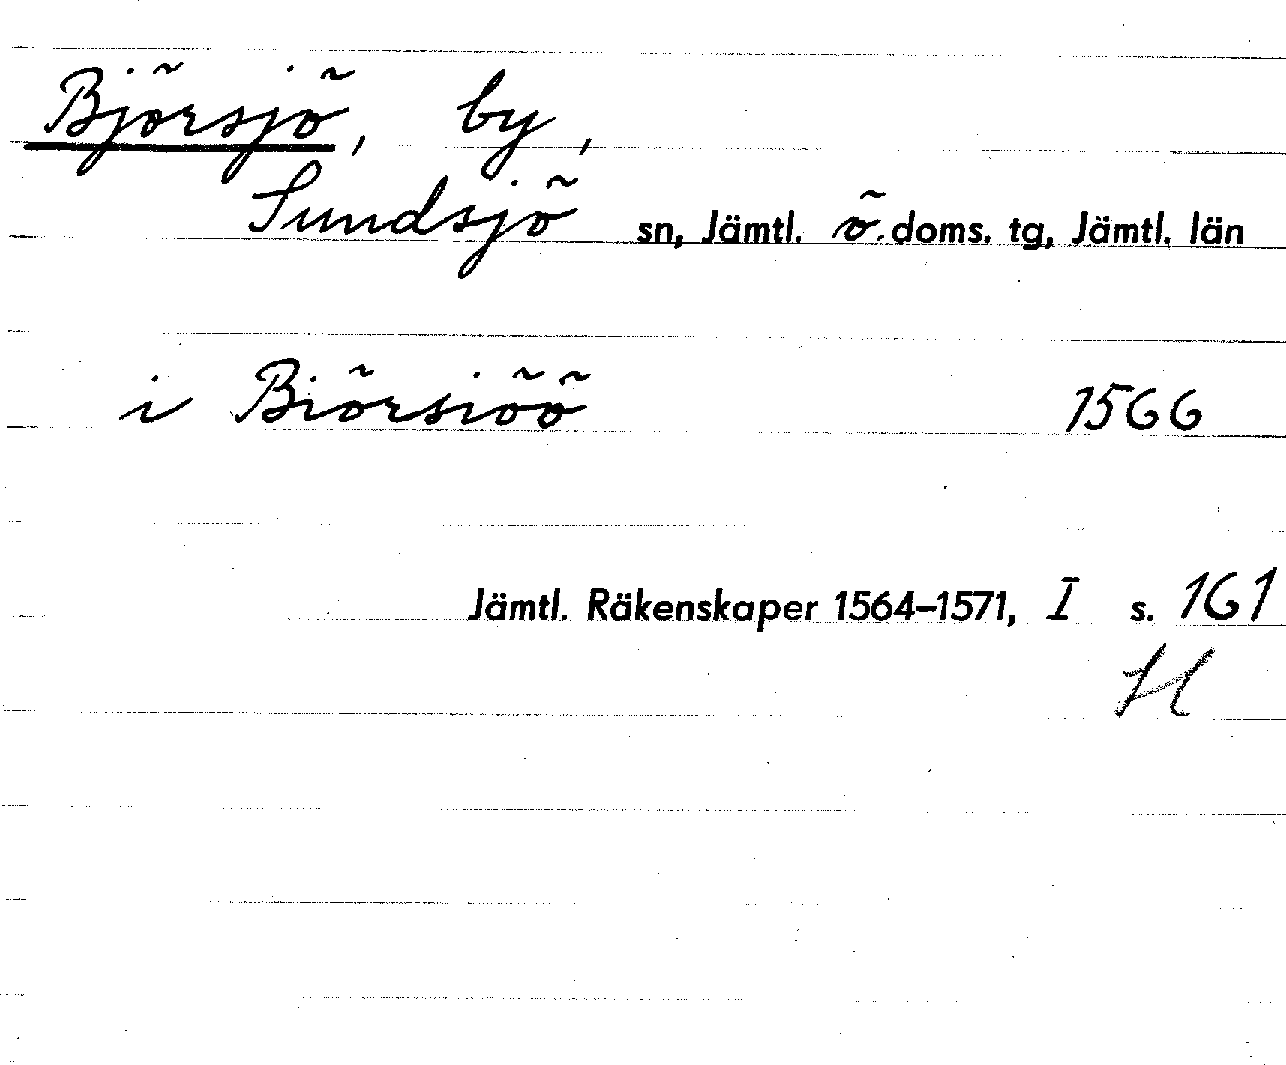 Björsjö, by,
Sundsjö sn, Jämtl. ö. doms. tg, Jämtl. län
i Biörsiöö 1566
Jämtl. Räkenskaper 1564–1571, I s. 161